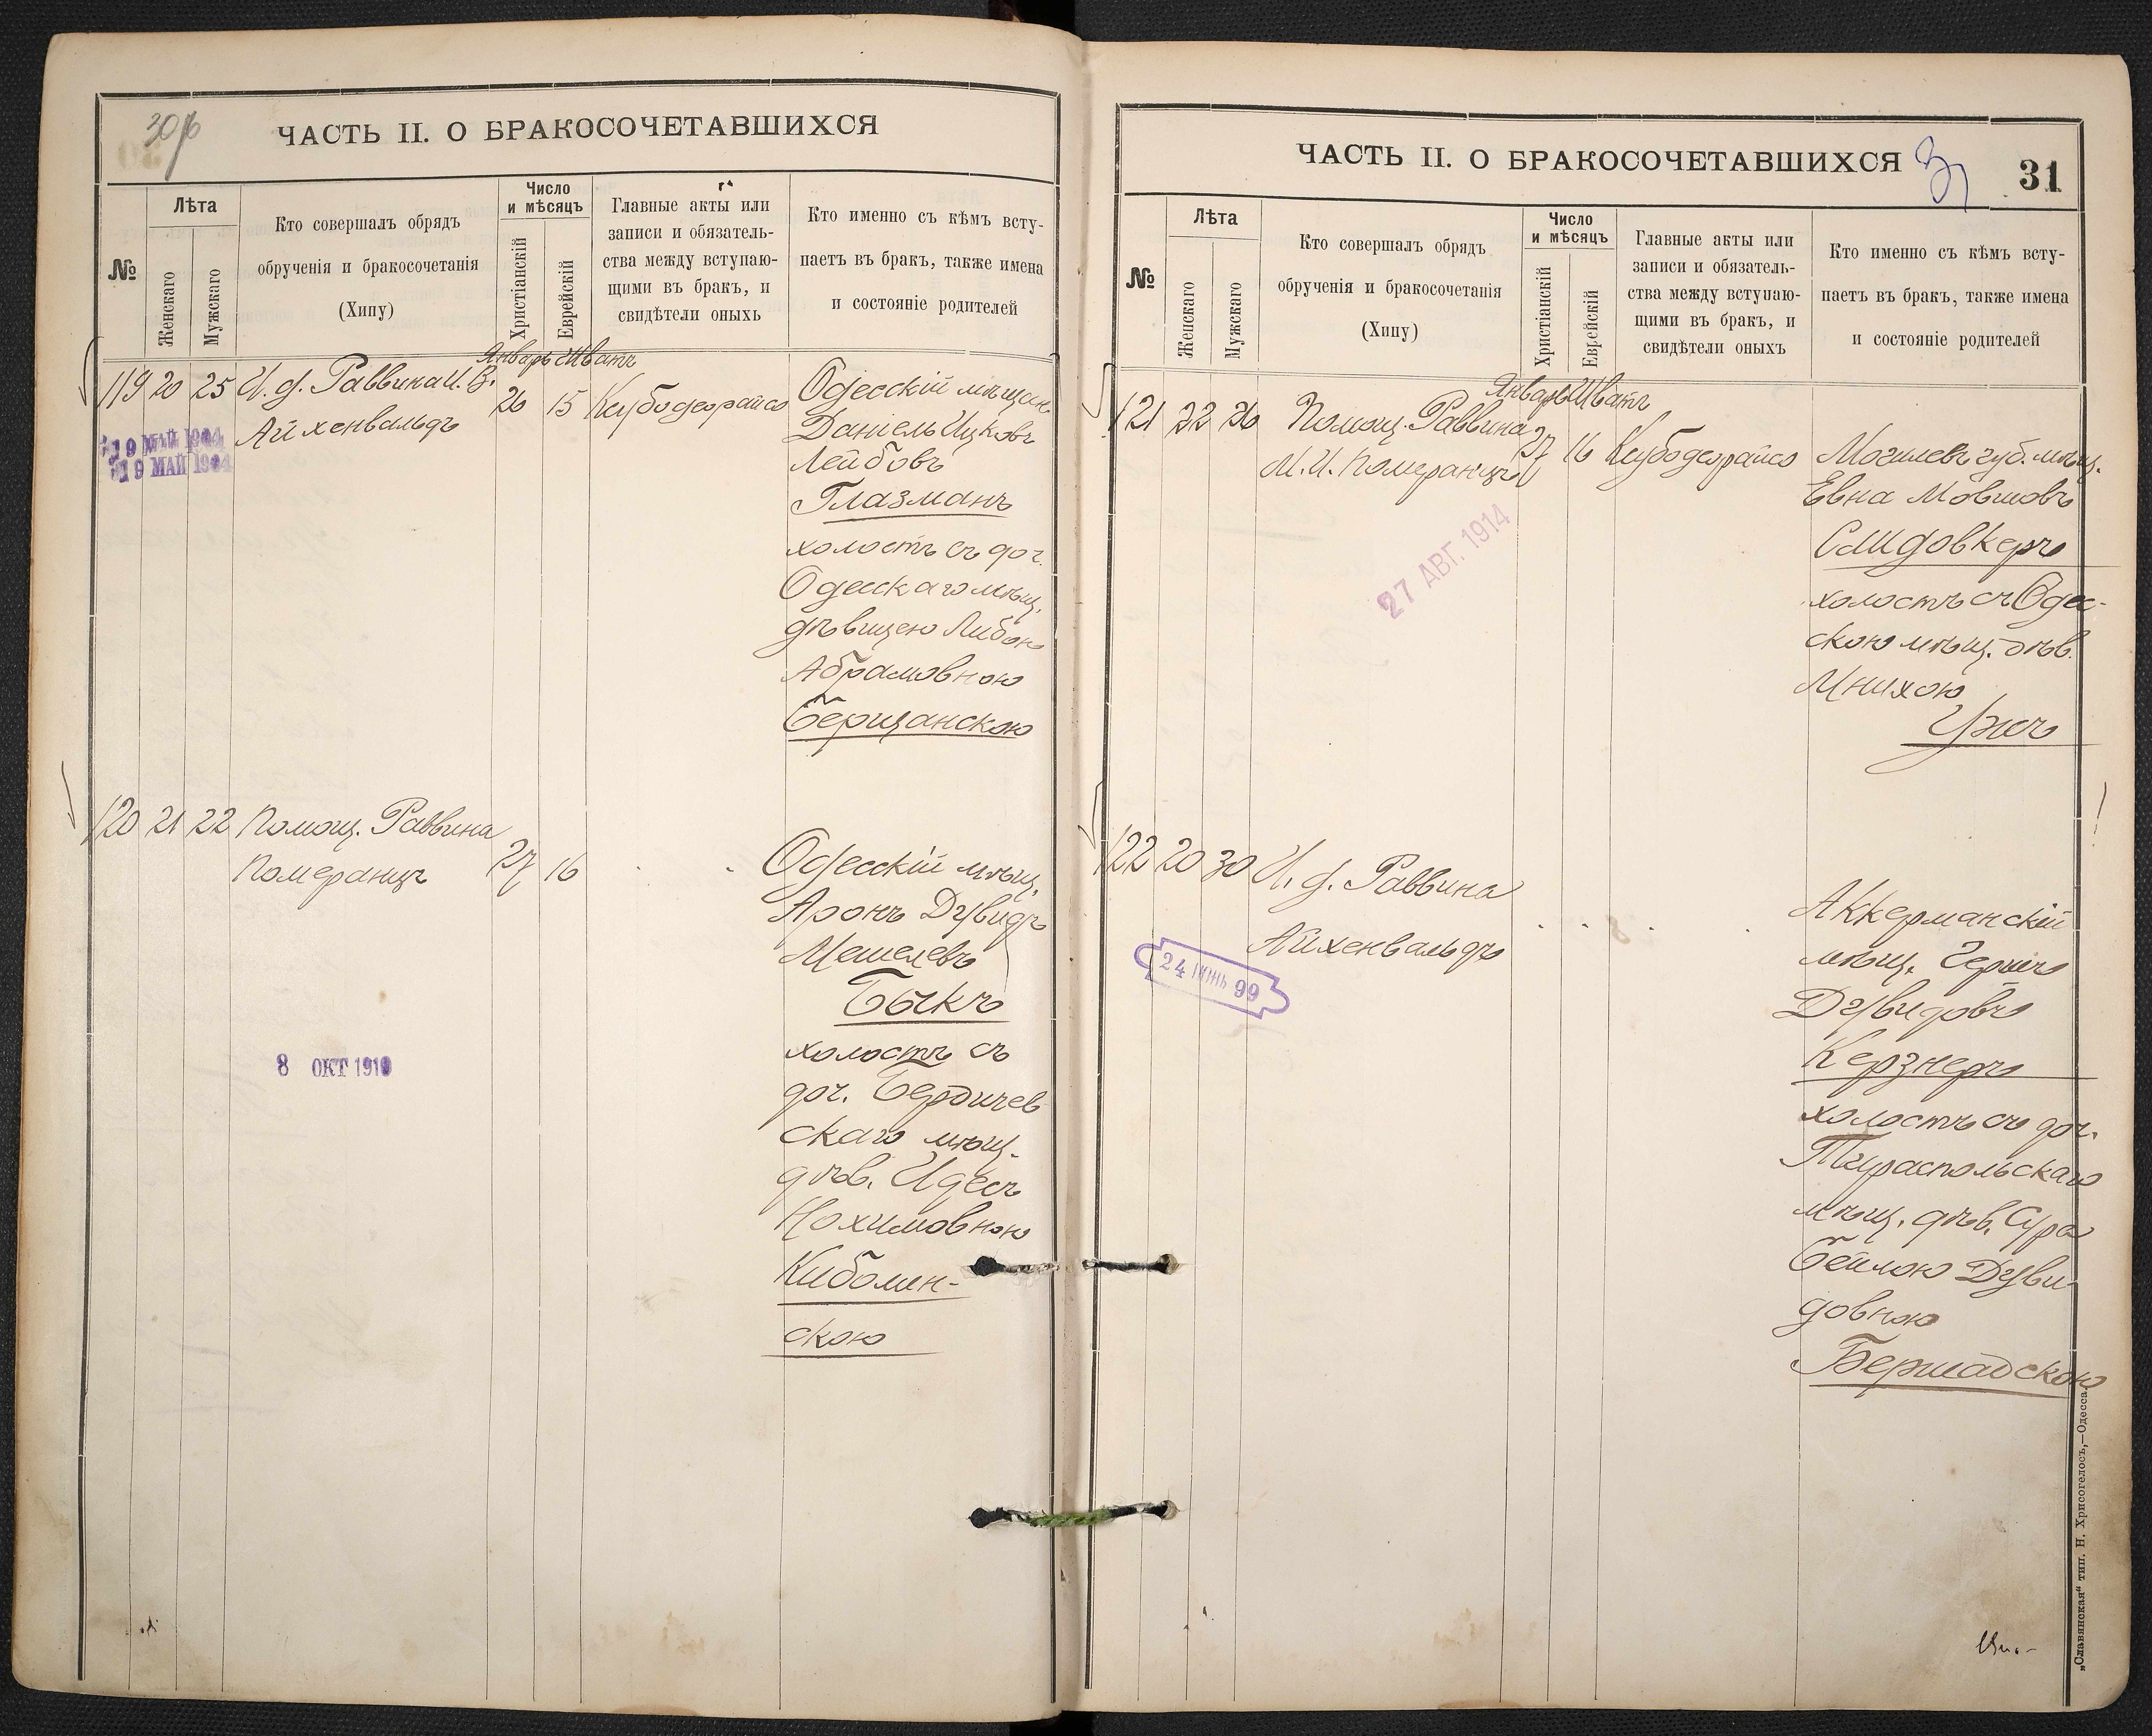 30 об
ЧАСТЬ II. О БРАКОСОЧЕТАВШИХСЯ
№
Лѣта
Женскаго
Мужскаго
Кто совершалъ обрядъ
обрученія и бракосочетанія
(Хипу)
Число
и мѣсяцъ
Христіанскій
Еврейскій
Главные акты или
записи и обязатель-
ства между вступаю-
щими въ бракъ, и
свидѣтели оныхъ
Кто именно съ кѣмъ всту-
паетъ въ бракъ, также имена
и состояніе родителей
Январь Шватъ
119 20 25 И. д. Раввина И. В.
Айхенвальдъ
26 15 Кубодеграйсо
19 МАЙ 1904
19 МАЙ 1904
Одесскій мѣщан.
Даніель Ицковъ
Лейбовъ
Глазманъ
холостъ съ доч.
Одесскаго мѣщ.
дѣвицею Либою
Абрамовною
Берщанскою
120 21 22 Помощ. Раввина
Померанцъ
27 16
8 ОКТ 1910
Одесскій мѣщ.
Аронъ Дувидъ
Мешелевъ
Быкъ
холостъ съ
доч. Бердичев
скаго мѣщ.
дѣв. Идесъ
Нохимовною
Киблин-
скою
ЧАСТЬ II. О БРАКОСОЧЕТАВШИХСЯ
31
31
№
Лѣта
Женскаго
Мужскаго
Кто совершалъ обрядъ
обрученія и бракосочетанія
(Хипу)
Число
и мѣсяцъ
Христіанскій
Еврейскій
Главные акты или
записи и обязатель-
ства между вступаю-
щими въ бракъ, и
свидѣтели оныхъ
Кто именно съ кѣмъ всту-
паетъ въ бракъ, также имена
и состояніе родителей
Январь Шватъ
121 22 26 Помощ. Раввина
М. И. Померанцъ
27 16 Кубодеграйсо
27 АВГ. 1914
Могилевъ губ. мѣщ.
Евна Мовшовъ
Слидовкеръ
холостъ съ Одес-
скою мѣщ. дѣв.
Мнихою
Ужъ
122 20 30 И. д. Раввина
Айхенвальдъ
24 ІЮНЬ 99
Аккерманскій
мѣщ. Гершъ
Дувидовъ
Керзнеръ
холостъ съ доч.
Тираспольскаго
мѣщ. дѣв. Сура
Бейлою Дуви-
довною
Бершадскою
„Славянская“ тип. Н. Хрисогелосъ,—Одесса.